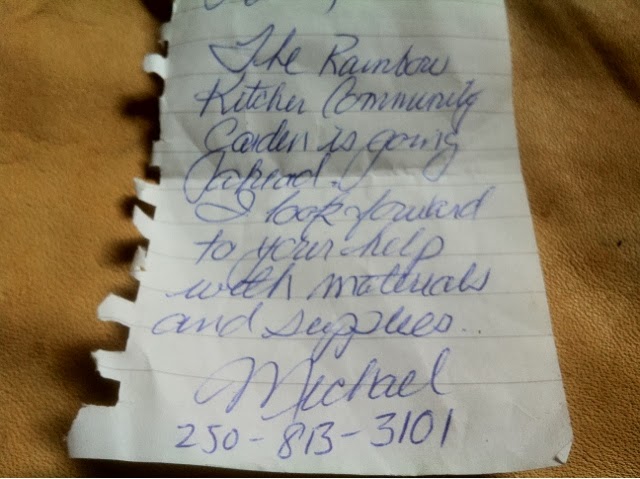 The Rainbow
Kitchen Community
Garden is going
ahead.
I look forward
to your help
with materials
and supplies..
Michael
250-813-3101